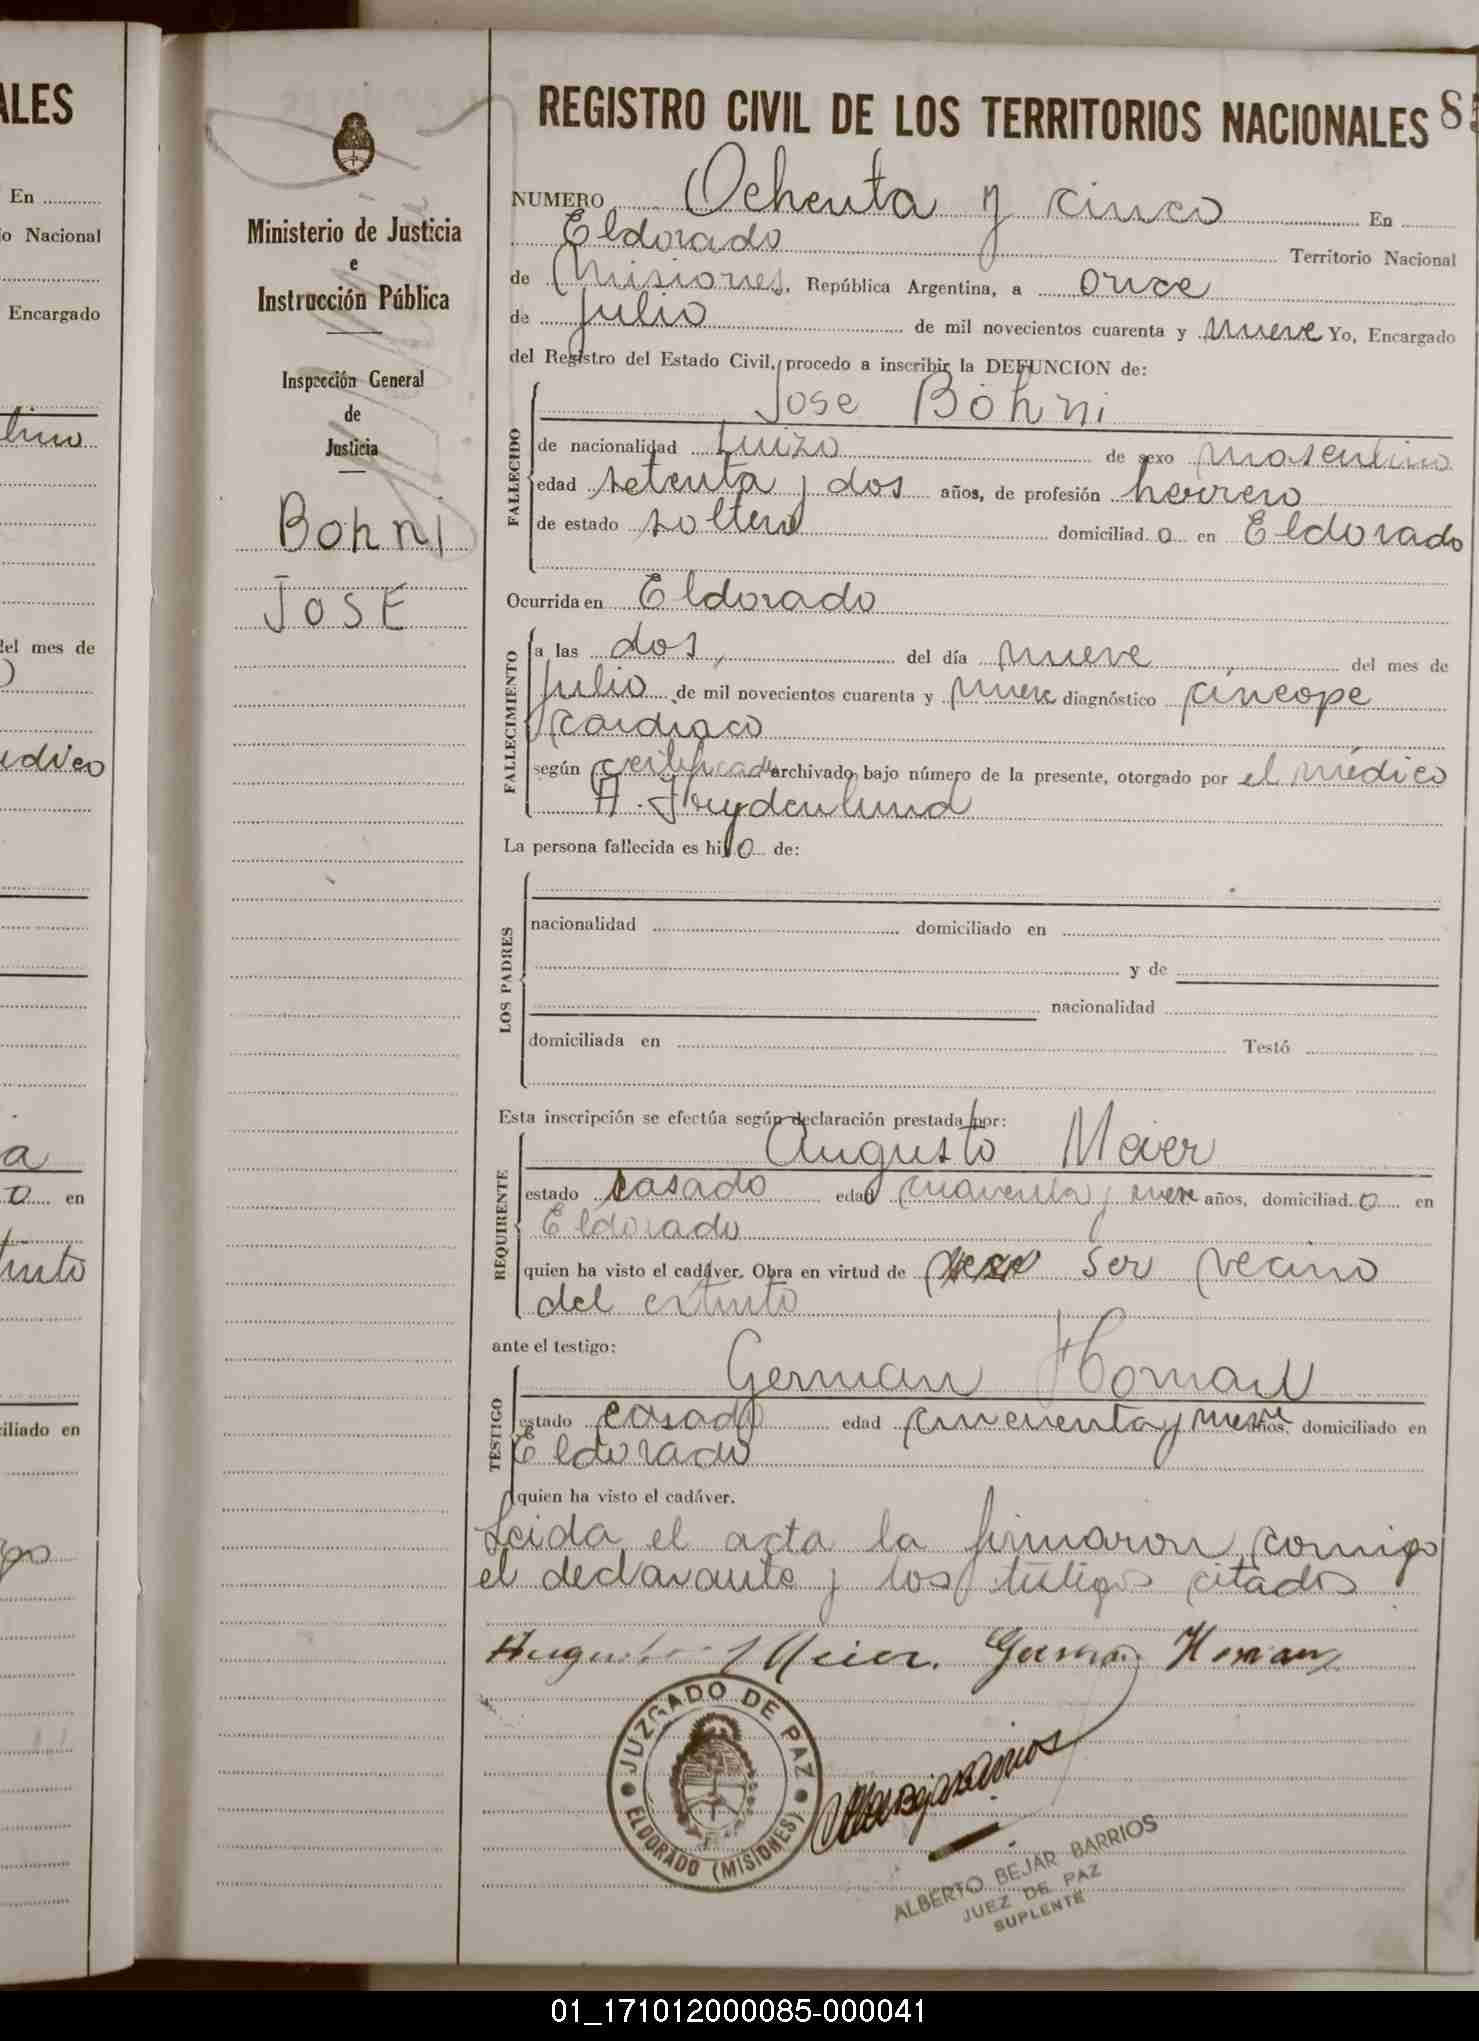 ALES
En
o Nacional
Encargado
lino
del mes de
en
iliado en
Ministerio de Justicia
e
Instrucción Pública
Inspección General
de
Justicia
Bohni
JOSE
REGISTRO CIVIL DE LOS TERRITORIOS NACIONALES 85
NUMERO Ochenta y cinco En
Eldorado Territorio Nacional
de Misiones, República Argentina, a once
de julio de mil novecientos cuarenta y nueve Yo, Encargado
del Registro del Estado Civil, procedo a inscribir la DEFUNCION de:
Jose Böhni
FALLECIDO
de nacionalidad suizo de sexo masculino
edad setenta y dos años, de profesión herrero
de estado soltero domiciliad o en Eldorado
Ocurrida en Eldorado
FALLECIMIENTO
a las dos, del día nueve, del mes de
julio de mil novecientos cuarenta y nueve diagnóstico síncope
cardiaco
según certificado archivado bajo número de la presente, otorgado por el médico
A. Frydenlund
La persona fallecida es hijo de:
LOS PADRES
nacionalidad domiciliado en
y de
nacionalidad
domiciliada en Testó
Esta inscripción se efectúa según declaración prestada por:
Augusto Meier
REQUIRENTE
estado casado edad cuarenta y nueve años, domiciliad o en
Eldorado
quien ha visto el cadáver. Obra en virtud de ser vecino
del extinto
ante el testigo:
German Homan
TESTIGO
estado casado edad cincuenta y nueve años, domiciliado en
Eldorado
quien ha visto el cadáver.
Leida el acta la firmaron conmigo
el declarante y los testigos citados
Augusto Meier. German Homan
JUZGADO DE PAZ
ELDORADO (MISIONES)
ALBERTO BEJAR BARRIOS
JUEZ DE PAZ
SUPLENTE
01_171012000085-000041